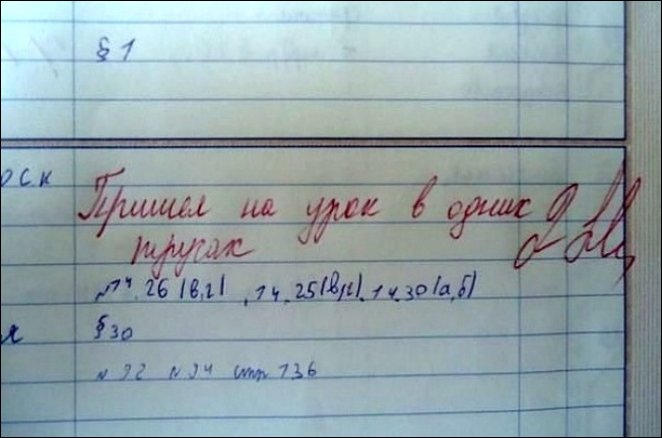 § 1
оск
Пришел на урок в одних
трусах
№14.26 (в,г), 14.25(в,г), 14.30(а,б)
я § 30
стр 136